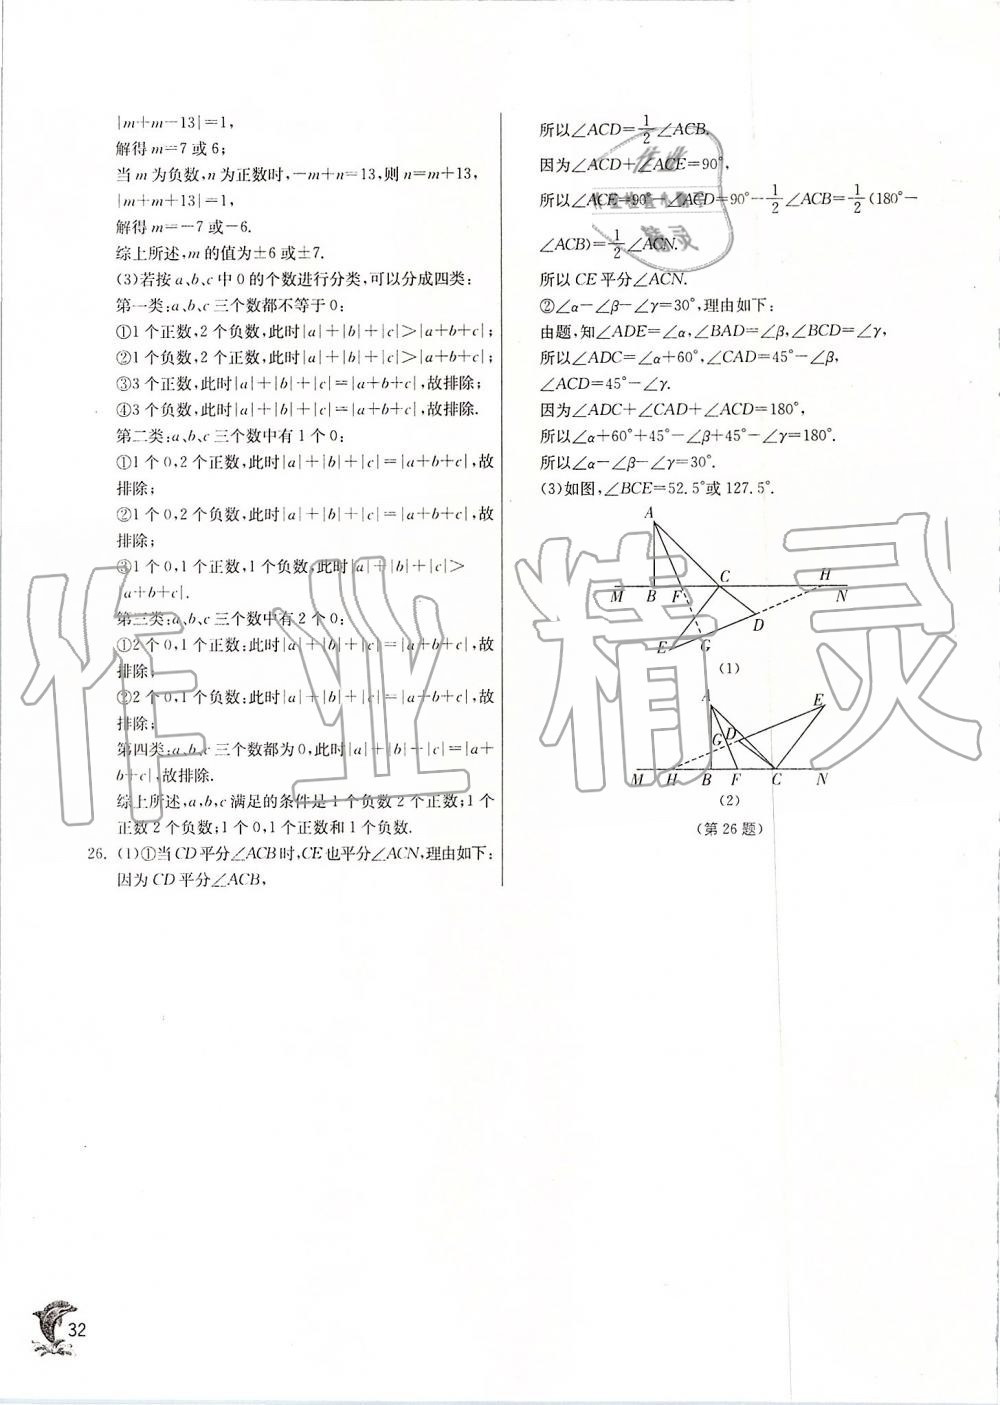 |m+m-13|=1,
解得 m=7 或 6;
当 m 为负数,n 为正数时,-m+n=13,则 n=m+13,
|m+m+13|=1,
解得 m=-7 或-6.
综上所述,m 的值为±6 或±7.
(3)若按 a、b、c 中 0 的个数进行分类,可以分成四类:
第一类:a、b、c 三个数都不等于 0:
①1 个正数,2 个负数,此时|a|+|b|+|c|>|a+b+c|;
②1 个负数,2 个正数,此时|a|+|b|+|c|>|a+b+c|;
③3 个正数,此时|a|+|b|+|c|=|a+b+c|,故排除;
④3 个负数,此时|a|+|b|+|c|=|a+b+c|,故排除.
第二类:a、b、c 三个数中有 1 个 0:
①1 个 0,2 个正数,此时|a|+|b|+|c|=|a+b+c|,故
排除;
②1 个 0,2 个负数,此时|a|+|b|+|c|=|a+b+c|,故
排除;
③1 个 0,1 个正数,1 个负数,此时|a|+|b|+|c|>
|a+b+c|.
第三类:a、b、c 三个数中有 2 个 0:
①2 个 0,1 个正数:此时|a|+|b|+|c|=|a+b+c|,故
排除;
②2 个 0,1 个负数:此时|a|+|b|+|c|=|a+b+c|,故
排除;
第四类:a、b、c 三个数都为 0,此时|a|+|b|+|c|=|a+
b+c|,故排除.
综上所述,a,b,c 满足的条件是 1 个负数 2 个正数;1 个
正数 2 个负数;1 个 0,1 个正数和 1 个负数.
26. (1)①当 CD 平分∠ACB 时,CE 也平分∠ACN,理由如下:
因为 CD 平分∠ACB,
所以∠ACD=1/2∠ACB.
因为∠ACD+∠ACE=90°,
所以∠ACE=90°-∠ACD=90°-1/2∠ACB=1/2(180°-
∠ACB)=1/2∠ACN.
所以 CE 平分∠ACN.
②∠α-∠β-∠γ=30°,理由如下:
由题,知∠ADE=∠α,∠BAD=∠β,∠BCD=∠γ,
所以∠ADC=∠α+60°,∠CAD=45°-∠β,
∠ACD=45°-∠γ.
因为∠ADC+∠CAD+∠ACD=180°,
所以∠α+60°+45°-∠β+45°-∠γ=180°.
所以∠α-∠β-∠γ=30°.
(3)如图,∠BCE=52.5°或 127.5°.
A
C H
M B F N
D
E G
(1)
A E
G D
M H B F C N
(2)
(第 26 题)
32
作业精灵
作业
精灵